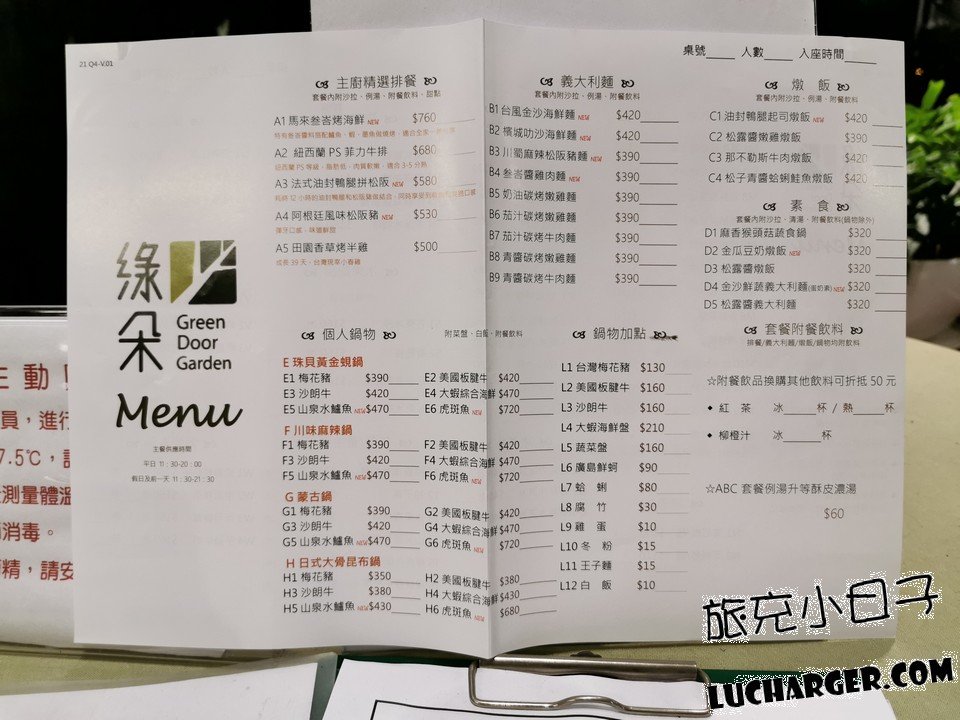 21 Q4-V.01
桌號 人數 入座時間
綠朵
Green
Door
Garden
Menu
主餐供應時間
平日 11:30-20:00
假日及前一天 11:30-21:30
主廚精選排餐
套餐內附沙拉、例湯、附餐飲料、甜點
A1 馬來叁峇烤海鮮 NEW $760
A2 紐西蘭PS菲力牛排 $680
紐西蘭PS等級，脂肪低，肉質軟嫩，適合3-5分熟
A3 法式油封鴨腿拼松阪 NEW $580
A4 阿根廷風味松阪豬 NEW $530
彈牙口感，味道鮮甜
A5 田園香草烤半雞 $500
成長39天，台灣現宰小春雞
義大利麵
套餐內附沙拉、例湯、附餐飲料
B1 台風金沙海鮮麵 NEW $420
B2 檳城叻沙海鮮麵 NEW $420
B3 川蜀麻辣松阪豬麵 NEW $390
B4 叁峇醬雞肉麵 NEW $390
B5 奶油碳烤嫩雞麵 $390
B6 茄汁碳烤嫩雞麵 $390
B7 茄汁碳烤牛肉麵 $390
B8 青醬碳烤嫩雞麵 $390
B9 青醬碳烤牛肉麵 $390
燉飯
套餐內附沙拉、例湯、附餐飲料
C1 油封鴨腿起司燉飯 NEW $420
C2 松露醬嫩雞燉飯 $390
C3 那不勒斯牛肉燉飯 $420
C4 松子青醬蛤蜊鮭魚燉飯 $420
素食
套餐內附沙拉、清湯、附餐飲料(鍋物除外)
D1 麻香猴頭菇蔬食鍋 $320
D2 金瓜豆奶燉飯 NEW $320
D3 松露醬燉飯 $320
D4 金沙鮮蔬義大利麵(蛋奶素) NEW $320
D5 松露醬義大利麵 $320
個人鍋物 附菜盤、白飯、附餐飲料
E 珠貝黃金蜆鍋
E1 梅花豬 $390 E2 美國板腱牛 $420
E3 沙朗牛 $420 E4 大蝦綜合海鮮 $470
E5 山泉水鱸魚 NEW $470 E6 虎斑魚 NEW $720
F 川味麻辣鍋
F1 梅花豬 $390 F2 美國板腱牛 $420
F3 沙朗牛 $420 F4 大蝦綜合海鮮 $470
F5 山泉水鱸魚 NEW $470 F6 虎斑魚 NEW $720
G 蒙古鍋
G1 梅花豬 $390 G2 美國板腱牛 $420
G3 沙朗牛 $420 G4 大蝦綜合海鮮 $470
G5 山泉水鱸魚 NEW $470 G6 虎斑魚 NEW $720
H 日式大骨昆布鍋
H1 梅花豬 $350 H2 美國板腱牛 $380
H3 沙朗牛 $380 H4 大蝦綜合海鮮 $430
H5 山泉水鱸魚 NEW $430 H6 虎斑魚 NEW $680
鍋物加點
L1 台灣梅花豬 $130
L2 美國板腱牛 $160
L3 沙朗牛 $160
L4 大蝦海鮮盤 $210
L5 蔬菜盤 $160
L6 廣島鮮蚵 $90
L7 蛤蜊 $80
L8 腐竹 $30
L9 雞蛋 $10
L10 冬粉 $15
L11 王子麵 $15
L12 白飯 $10
套餐附餐飲料
排餐/義大利麵/燉飯/鍋物均附飲料
☆附餐飲品換購其他飲料可折抵50元
◆ 紅茶 冰 杯 / 熱 杯
◆ 柳橙汁 冰 杯
☆ABC 套餐例湯升等酥皮濃湯
$60
主動
員，進行
7.5℃，
測量體溫
消毒。
精，請安
旅充小日子
LUCHARGER.COM